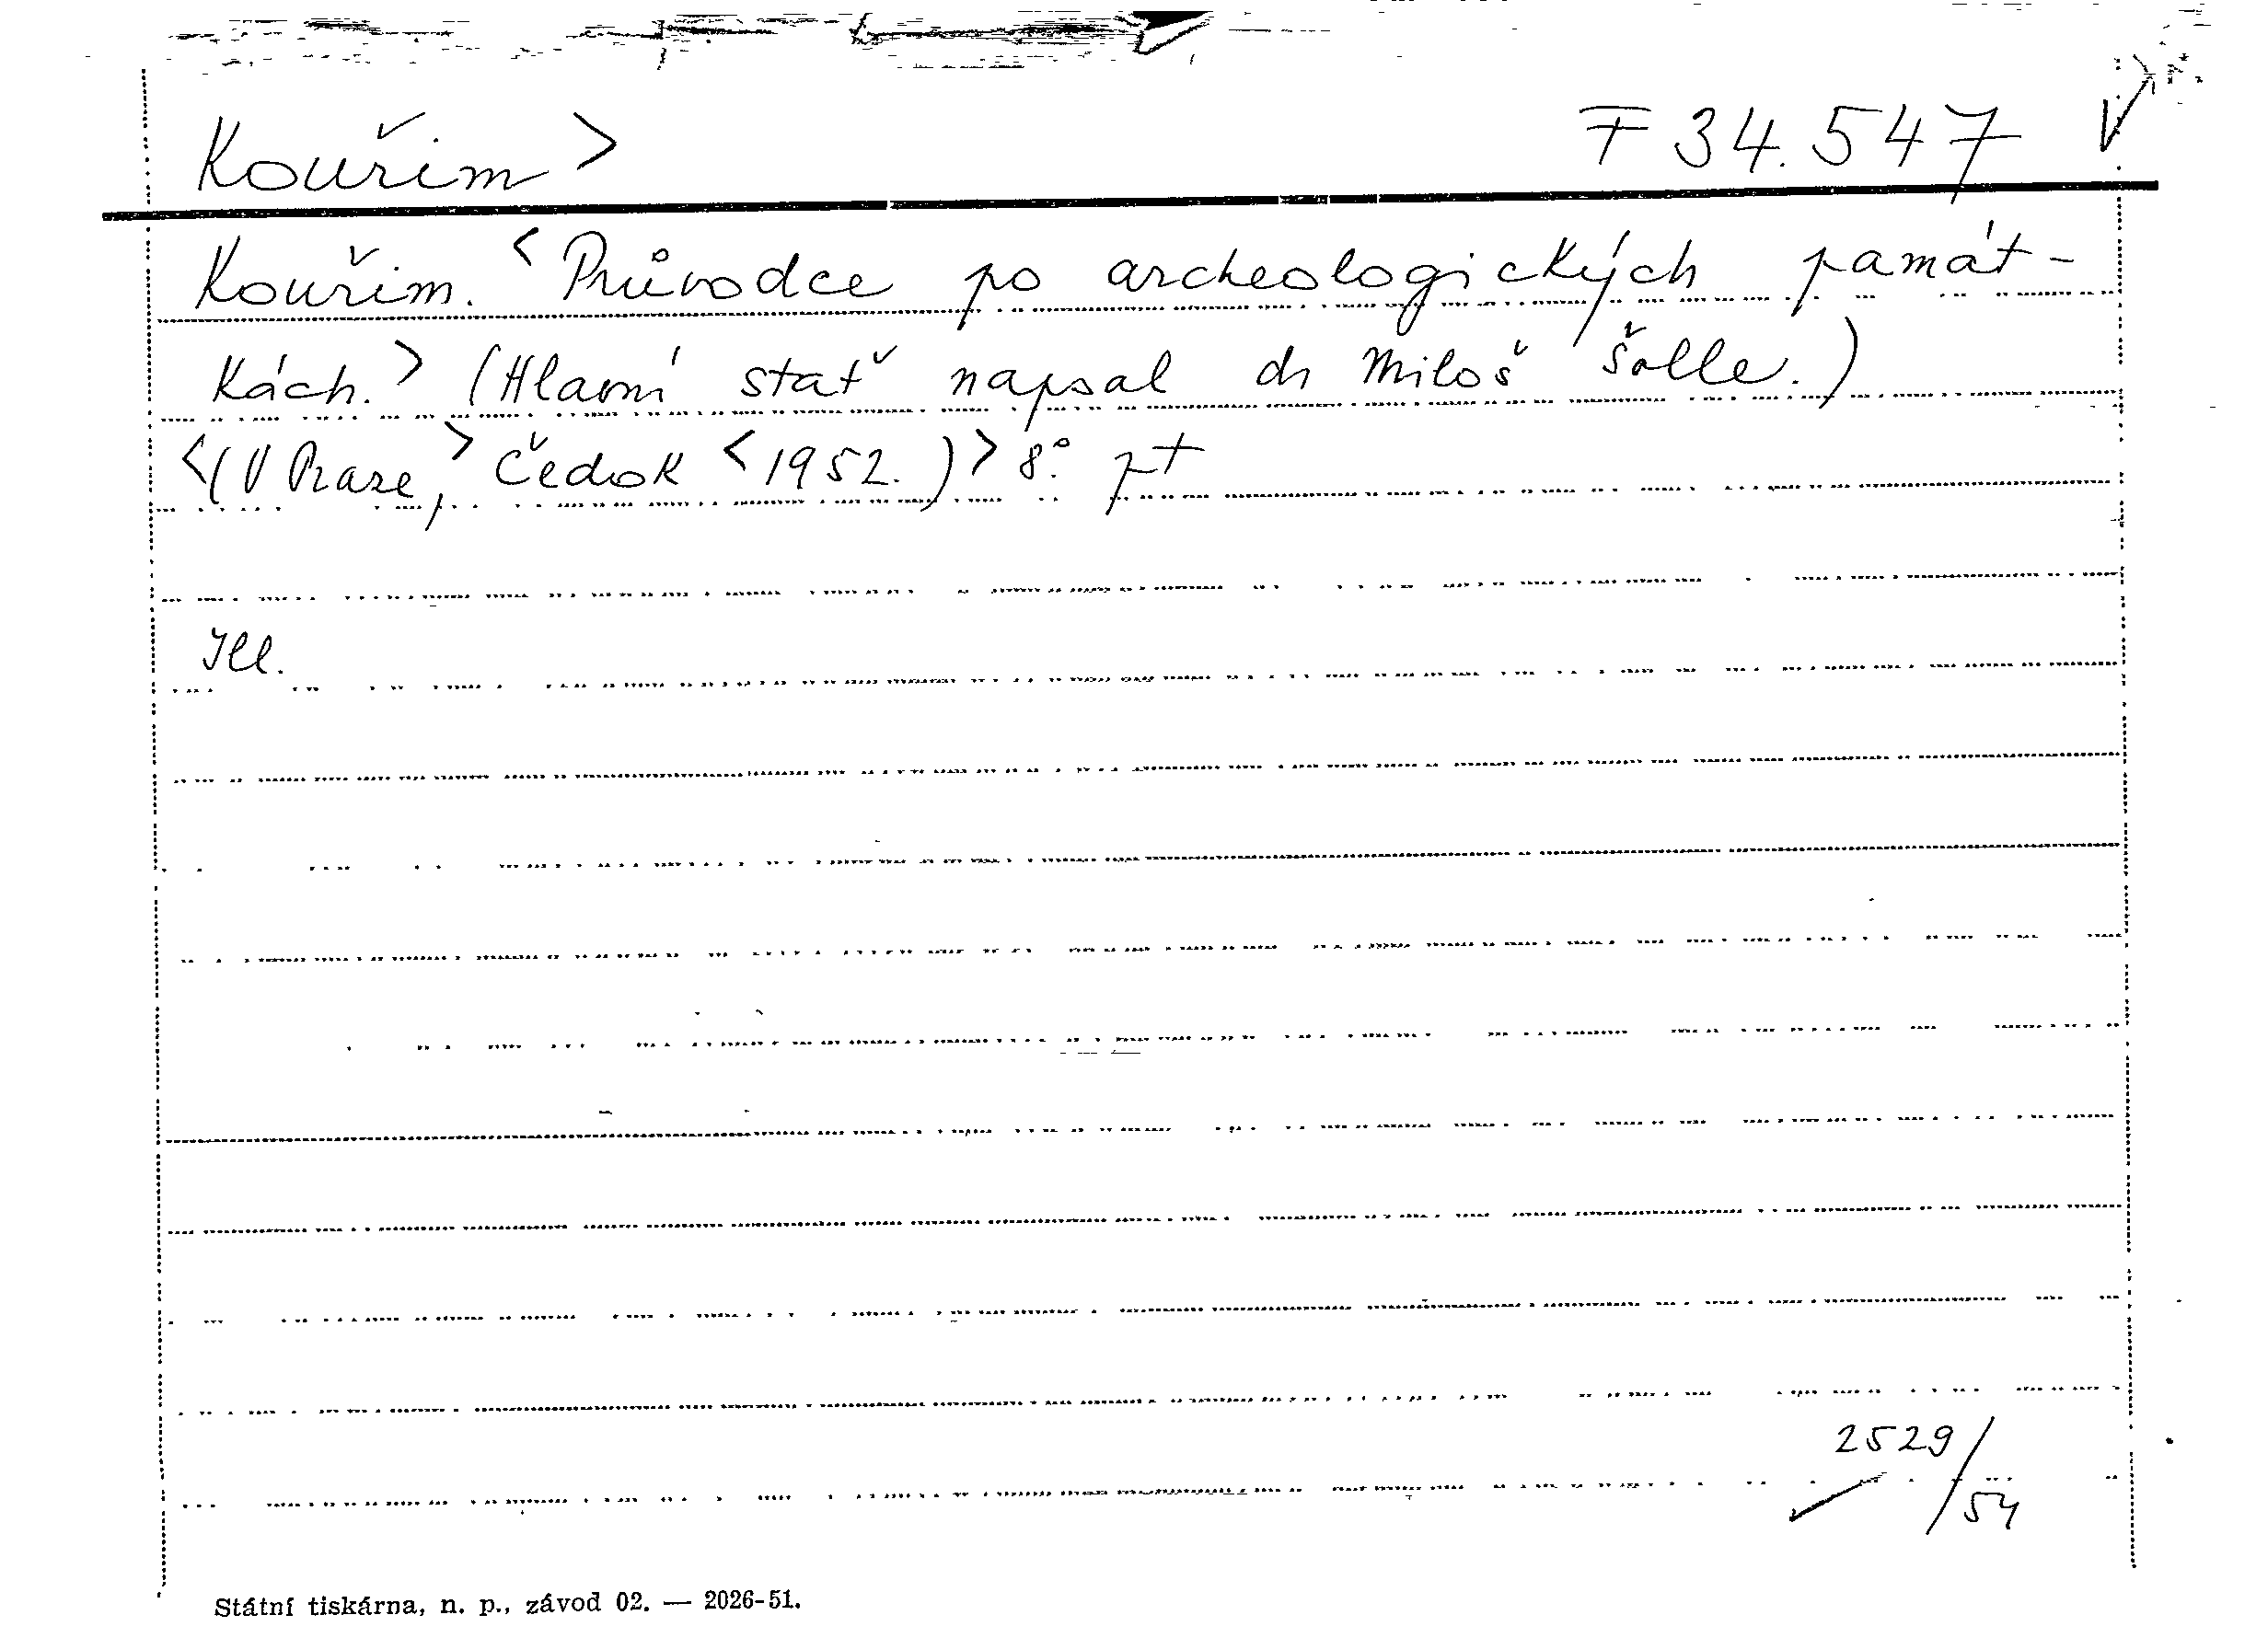 Kouřim > F 34.547
Kouřim. <Průvodce po archeologických památ-
kách.> (Hlavní stať napsal dr Miloš Šolle.)
<(V Praze,> Čedok <1952.)> 8°.
Ill.
2529/54
Státní tiskárna, n. p., závod 02. — 2026-51.